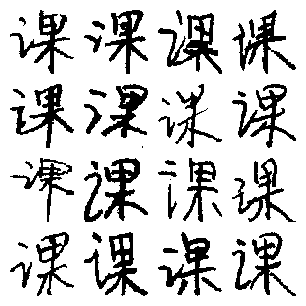 课课课课
课课课课
课课课课
课课课课